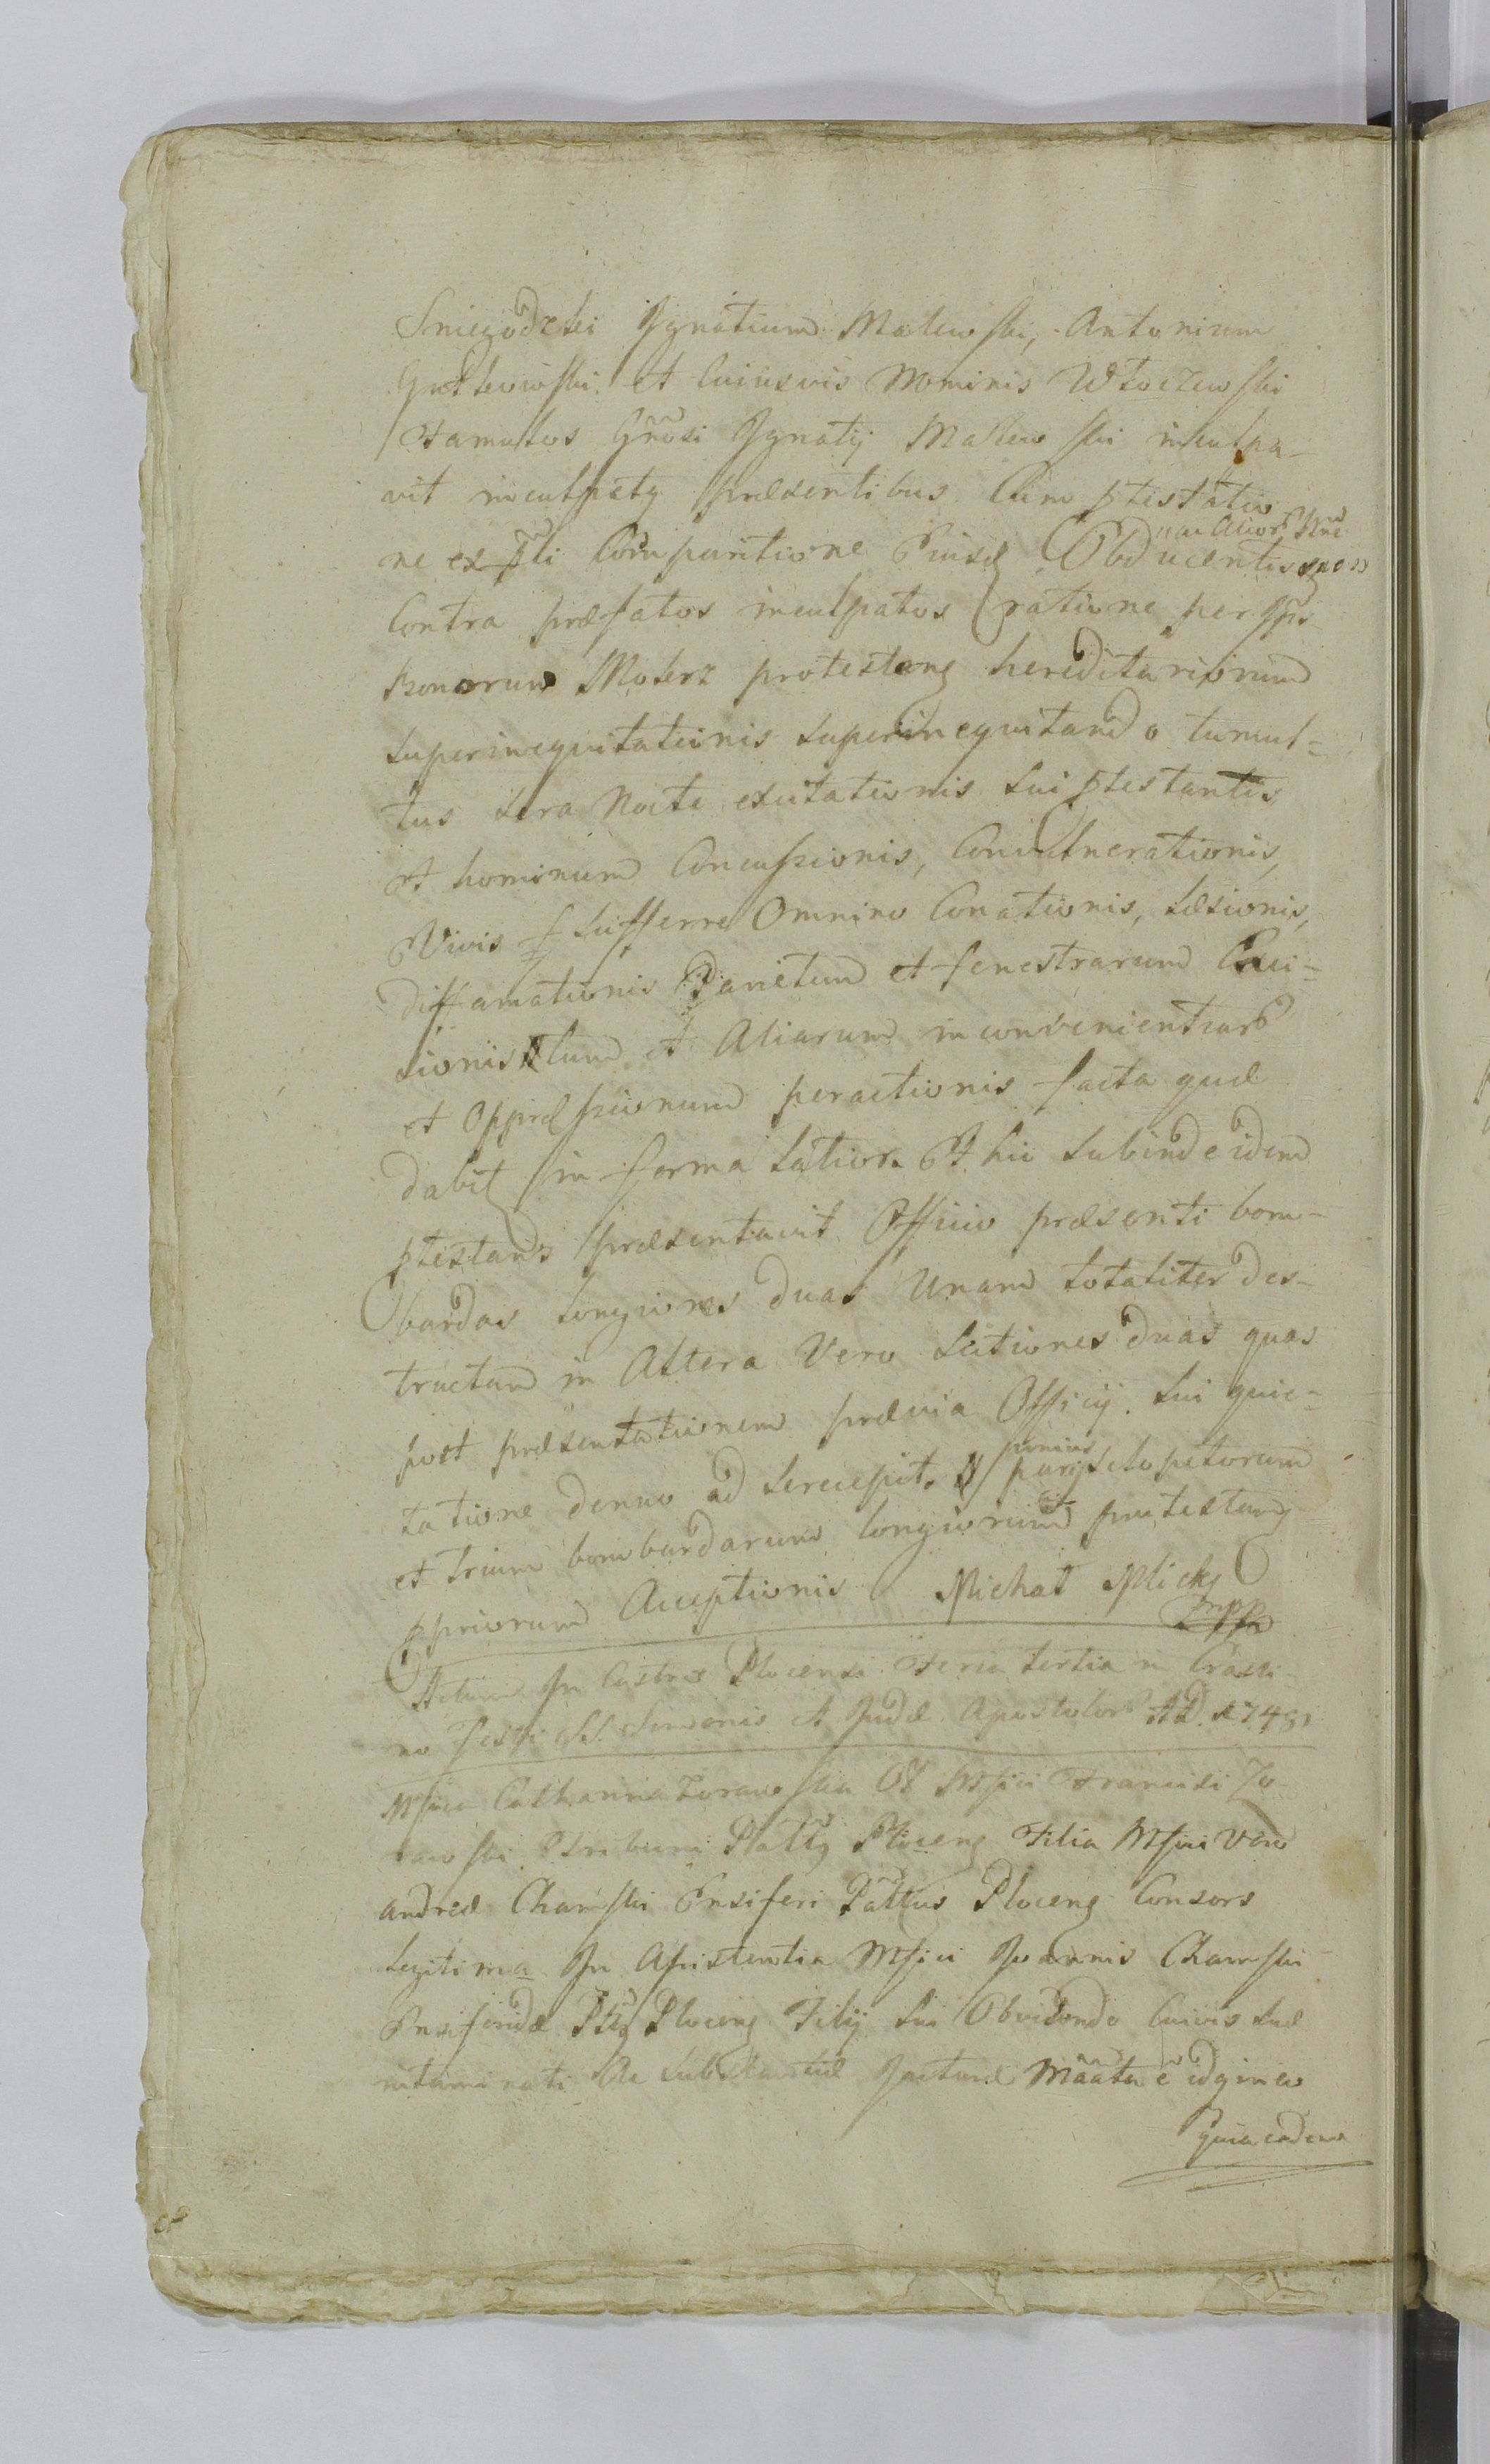 Sniegodzki Ignatium Malewski, Antonium
Gutkowski et Cuiusvis Nominis Włoczewski
Famulos Gnosi Ignatij Malewski inculpa-
vit inculpatq præsentibus Cum ptestatio
ne ex Comparitione Eiusd Obducentis
Contra præfatos inculpatos ratione per Ipsos
Bonorum Mokrz protestang hereditariorum
superinequitationis superinequitando tumul=
tus sera Nocte excitationis sui ptestantis
et hominum Concussionis, Convulnerationis,
Vivis sufferre Omnino Conationis, Læsionis,
diffamationis Parietum et fenestrarum Exci=
sionis tum et Aliarum inconvenientiar
et Oppræssionum peractionis facta quæ
dabit in forma Latiore Et hic subinde idem
ptestans præsentavit Officio præsenti bom-
bardas longiores duas Unam totaliter des-
tructam in Altera Vero Sectiones duas quas
post præsentationem prævia Officij sui quie=
tatione denuo ad se recepit. parij sclopetorum
et trium bombardarum longiorum protestang
ppriorum Acceptionis Michał Mlicky
mpp
Actum In Castro Plocensi Feria tertia in Crasti-
no Festi SS. Simonis et Judæ Apostolor AD. 1748
Mfica Catharina Zorawska Olim Mfici Francisci Zo-
rawski Tribuni Plattq Ploceng Filia Mfici Vero
Andreæ Chamski Ensiferi Pattus Ploceng Consors
Legitima In Assistentia Mfici Joannis Chamski
Ensiferidæ Ploceng Filij sui Obviando Cuivis suæ
ac substantiæ Jacturæ Mããta ẽ idq in eo
Quia eadem